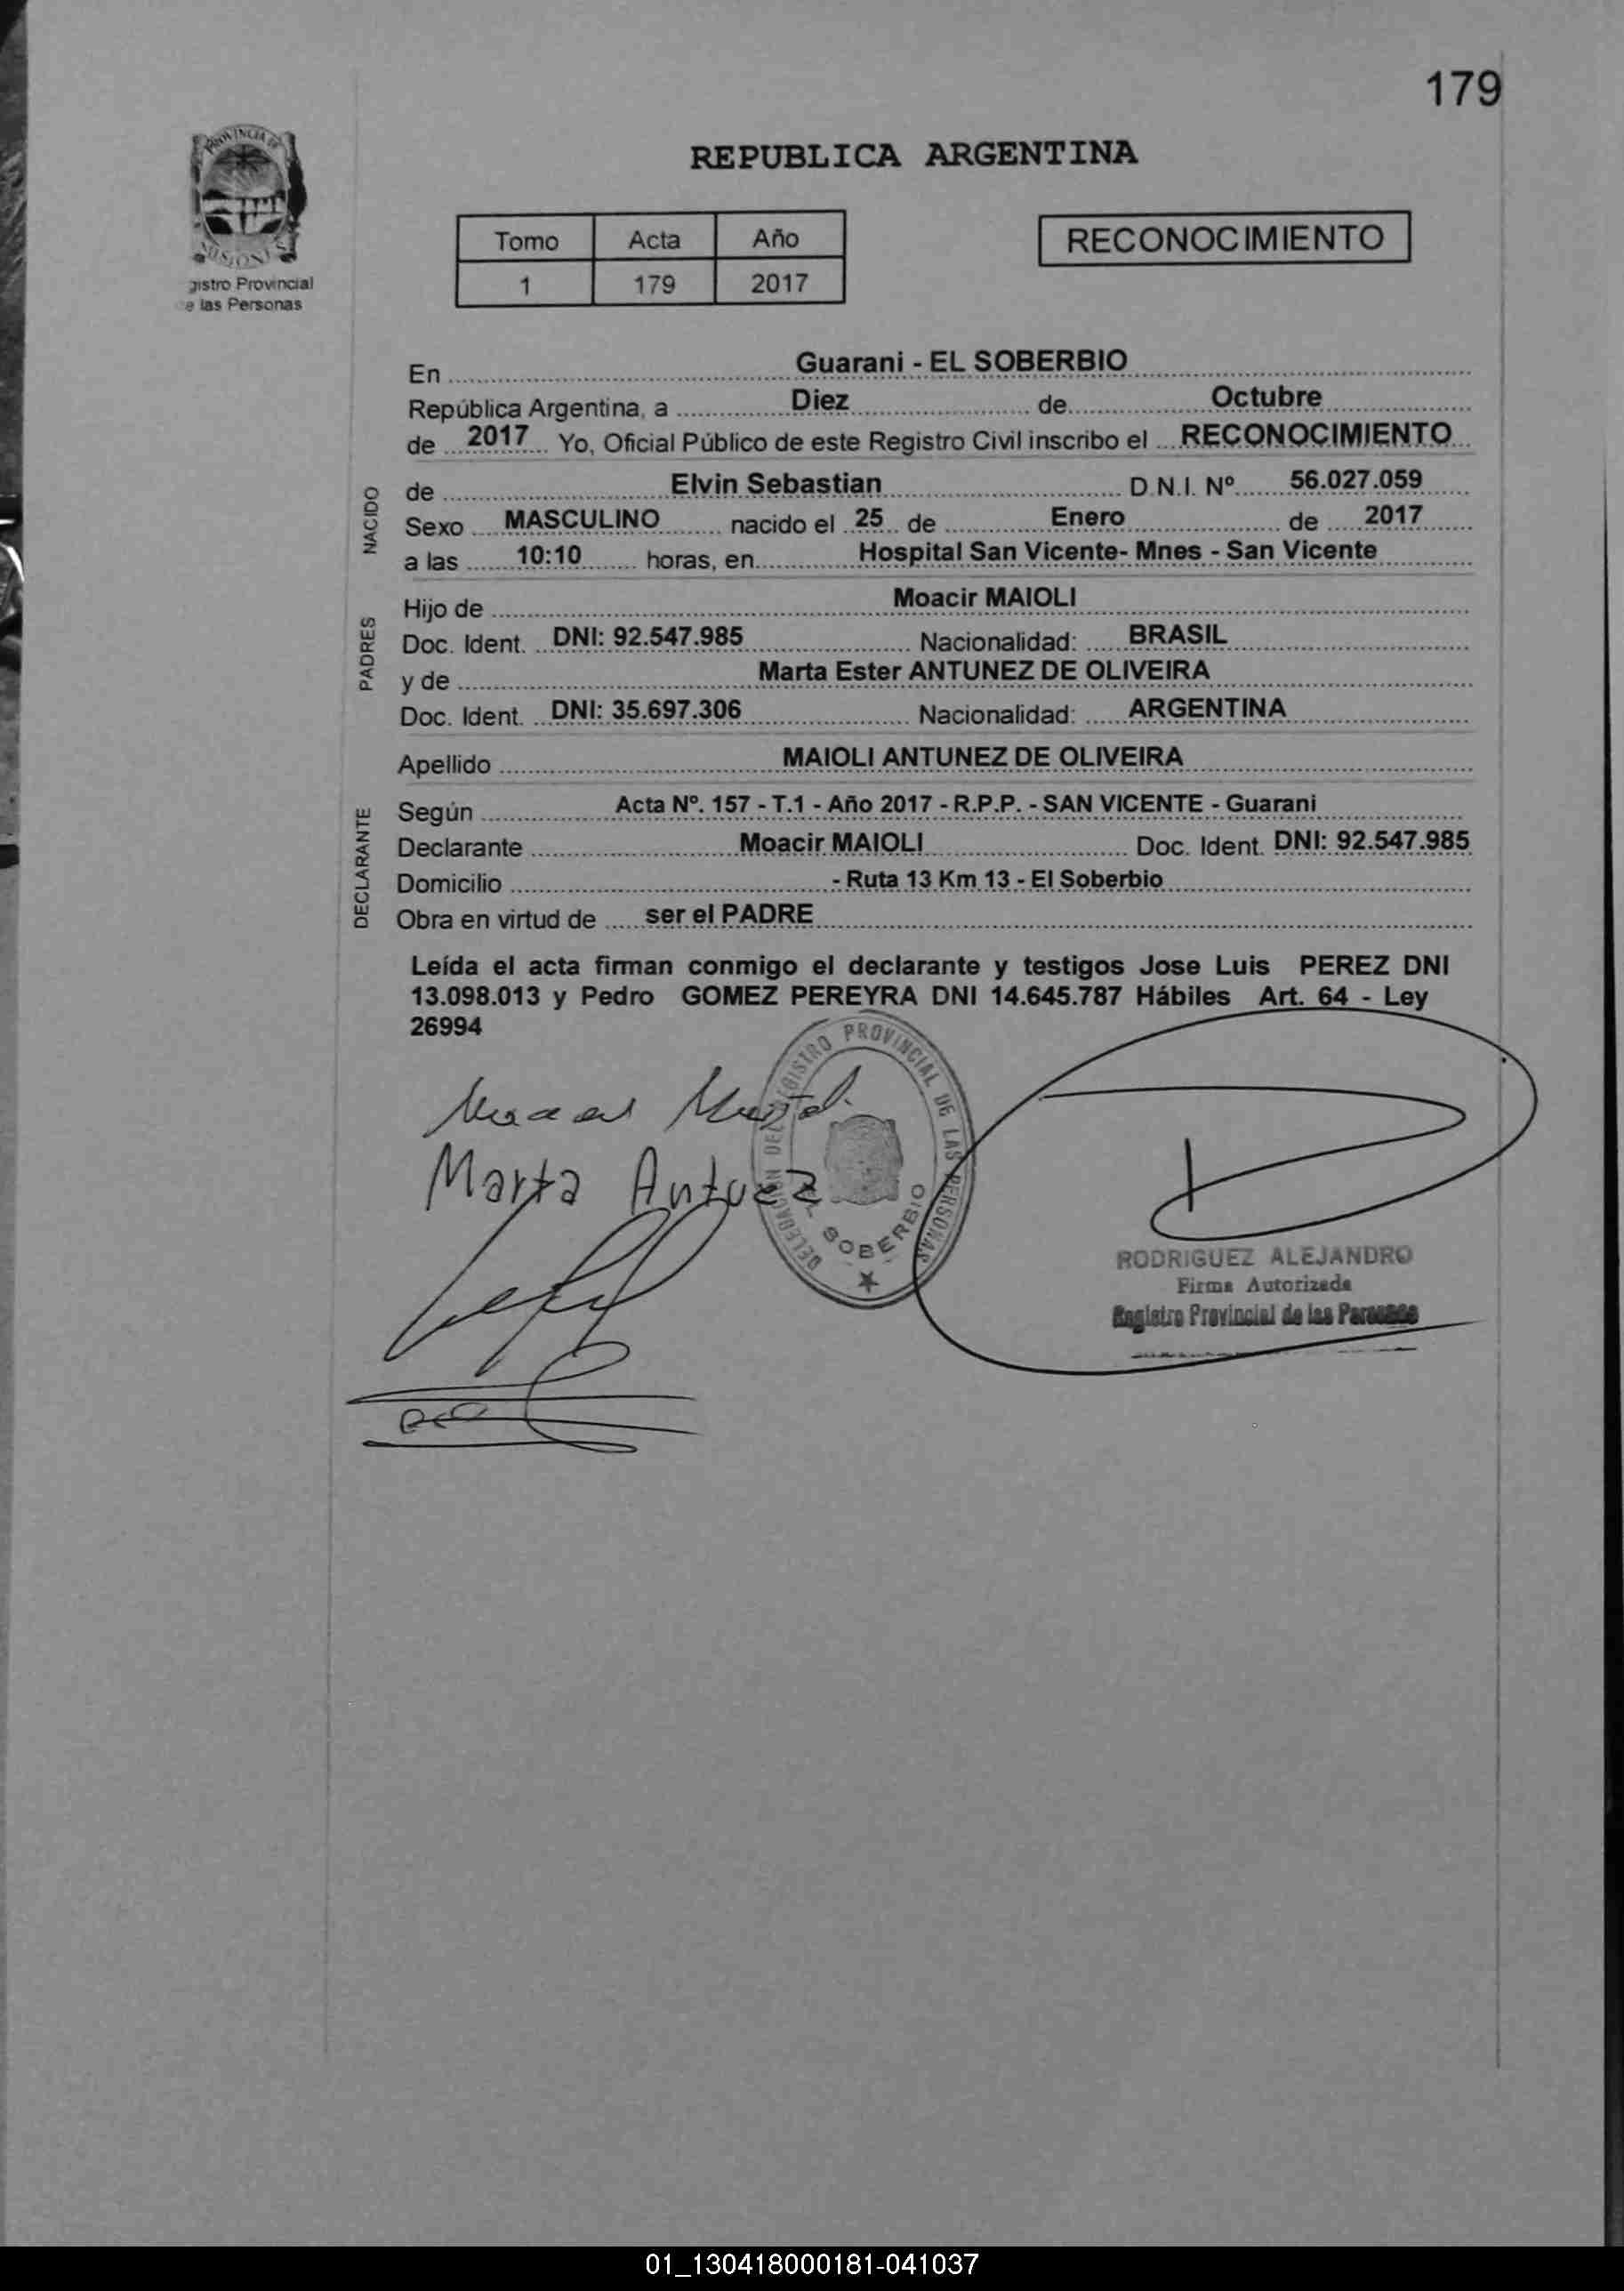 179
PROVINCIA DE
MISIONES
gistro Provincial
e las Personas
REPUBLICA ARGENTINA
Tomo Acta Año
1 179 2017
RECONOCIMIENTO
En Guarani - EL SOBERBIO
República Argentina, a Diez de Octubre
de 2017 Yo, Oficial Público de este Registro Civil inscribo el RECONOCIMIENTO
NACIDO
de Elvin Sebastian D.N.I. Nº 56.027.059
Sexo MASCULINO nacido el 25 de Enero de 2017
a las 10:10 horas, en Hospital San Vicente- Mnes - San Vicente
PADRES
Hijo de Moacir MAIOLI
Doc. Ident. DNI: 92.547.985 Nacionalidad: BRASIL
y de Marta Ester ANTUNEZ DE OLIVEIRA
Doc. Ident. DNI: 35.697.306 Nacionalidad: ARGENTINA
Apellido MAIOLI ANTUNEZ DE OLIVEIRA
DECLARANTE
Según Acta Nº. 157 - T.1 - Año 2017 - R.P.P. - SAN VICENTE - Guarani
Declarante Moacir MAIOLI Doc. Ident. DNI: 92.547.985
Domicilio - Ruta 13 Km 13 - El Soberbio
Obra en virtud de ser el PADRE
Leída el acta firman conmigo el declarante y testigos Jose Luis PEREZ DNI
13.098.013 y Pedro GOMEZ PEREYRA DNI 14.645.787 Hábiles Art. 64 - Ley
26994
DELEGACION DEL REGISTRO PROVINCIAL DE LAS PERSONAS
EL SOBERBIO
Marta Antuez
RODRIGUEZ ALEJANDRO
Firma Autorizada
Registro Provincial de las Personas
01_130418000181-041037